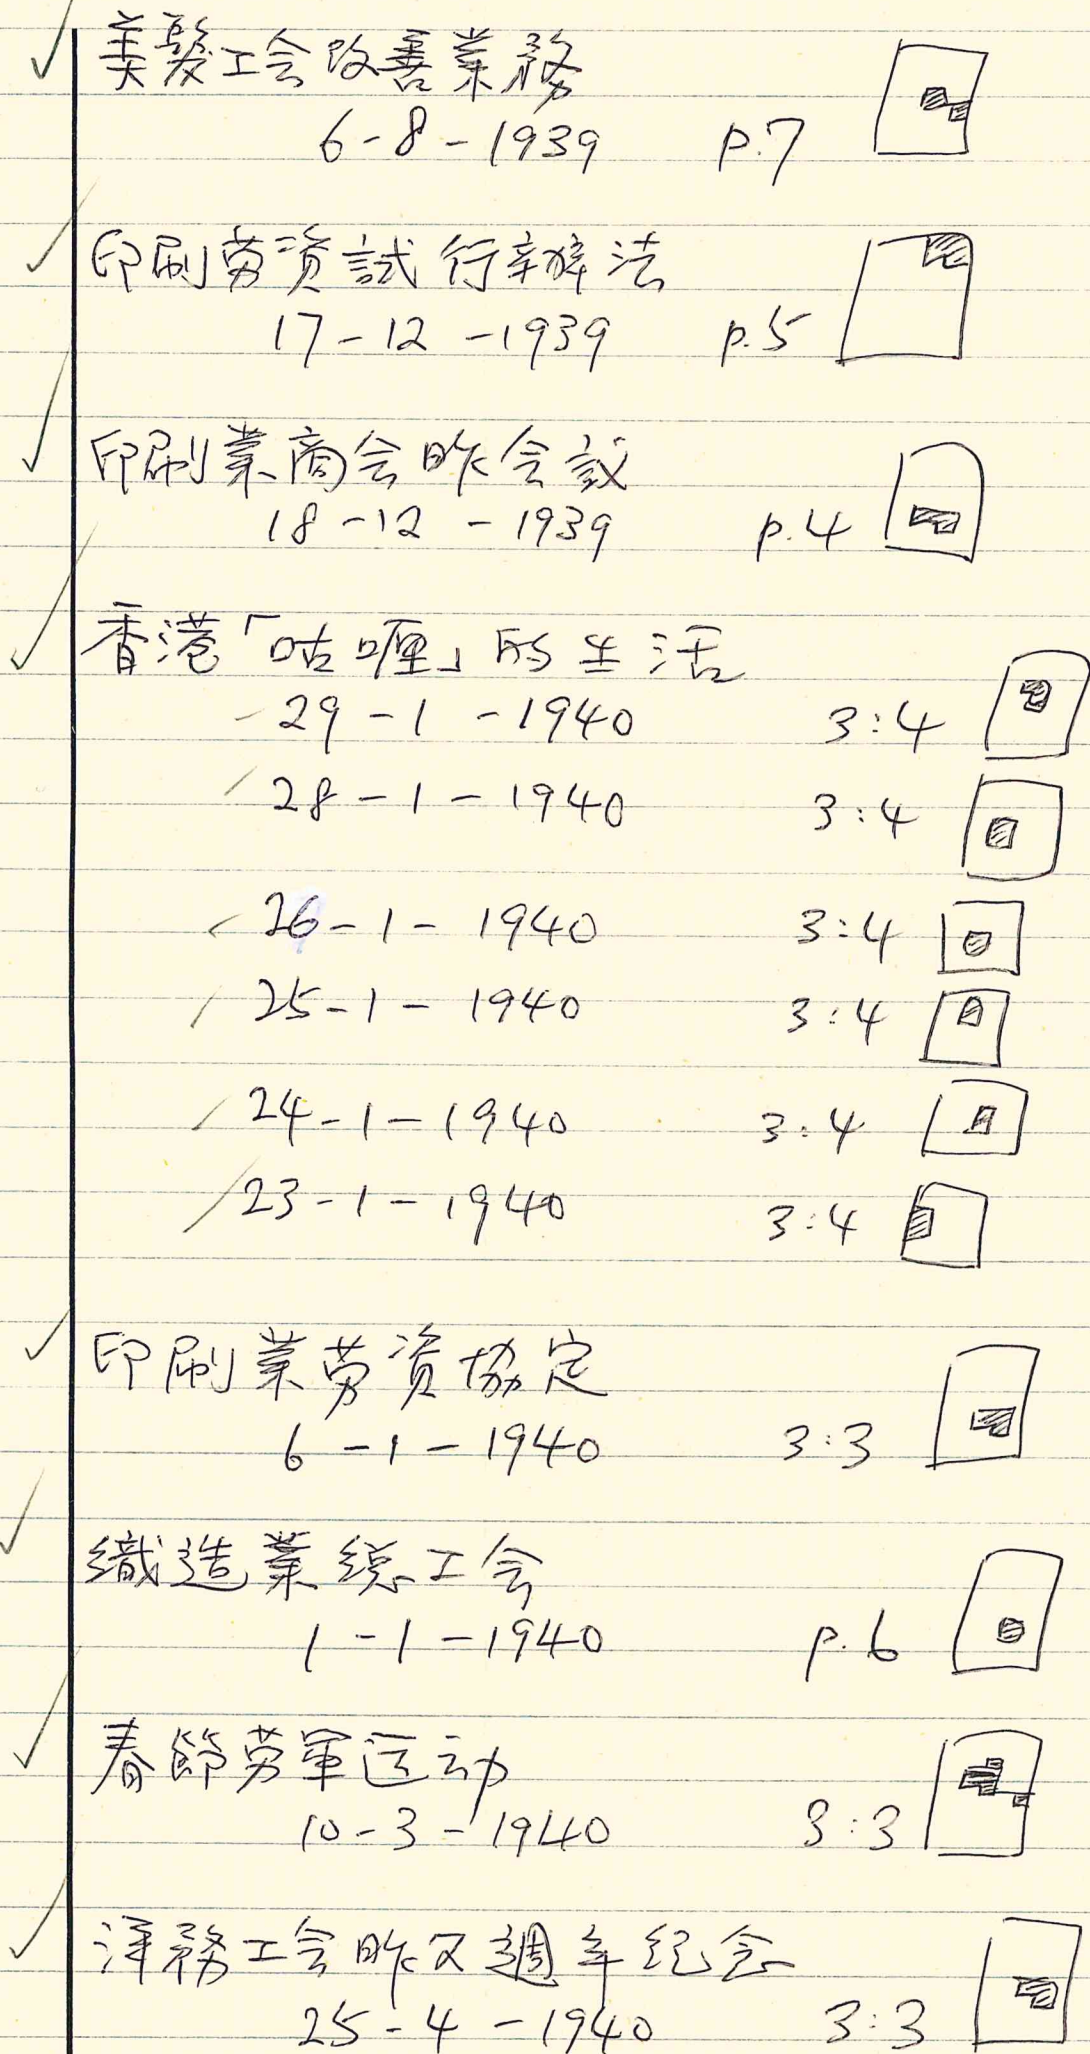 美髮工会改善業務
6-8-1939 p.7
印刷劳资試行辦法
17-12-1939 p.5
印刷業商会昨会议
18-12-1939 p.4
香港「咕喱」的生活
29-1-1940 3:4
28-1-1940 3:4
26-1-1940 3:4
25-1-1940 3:4
24-1-1940 3:4
23-1-1940 3:4
印刷業劳资协定
6-1-1940 3:3
織造業総工会
1-1-1940 p.6
春節劳軍运动
10-3-1940 3:3
洋務工会昨又週年纪念
25-4-1940 3:3